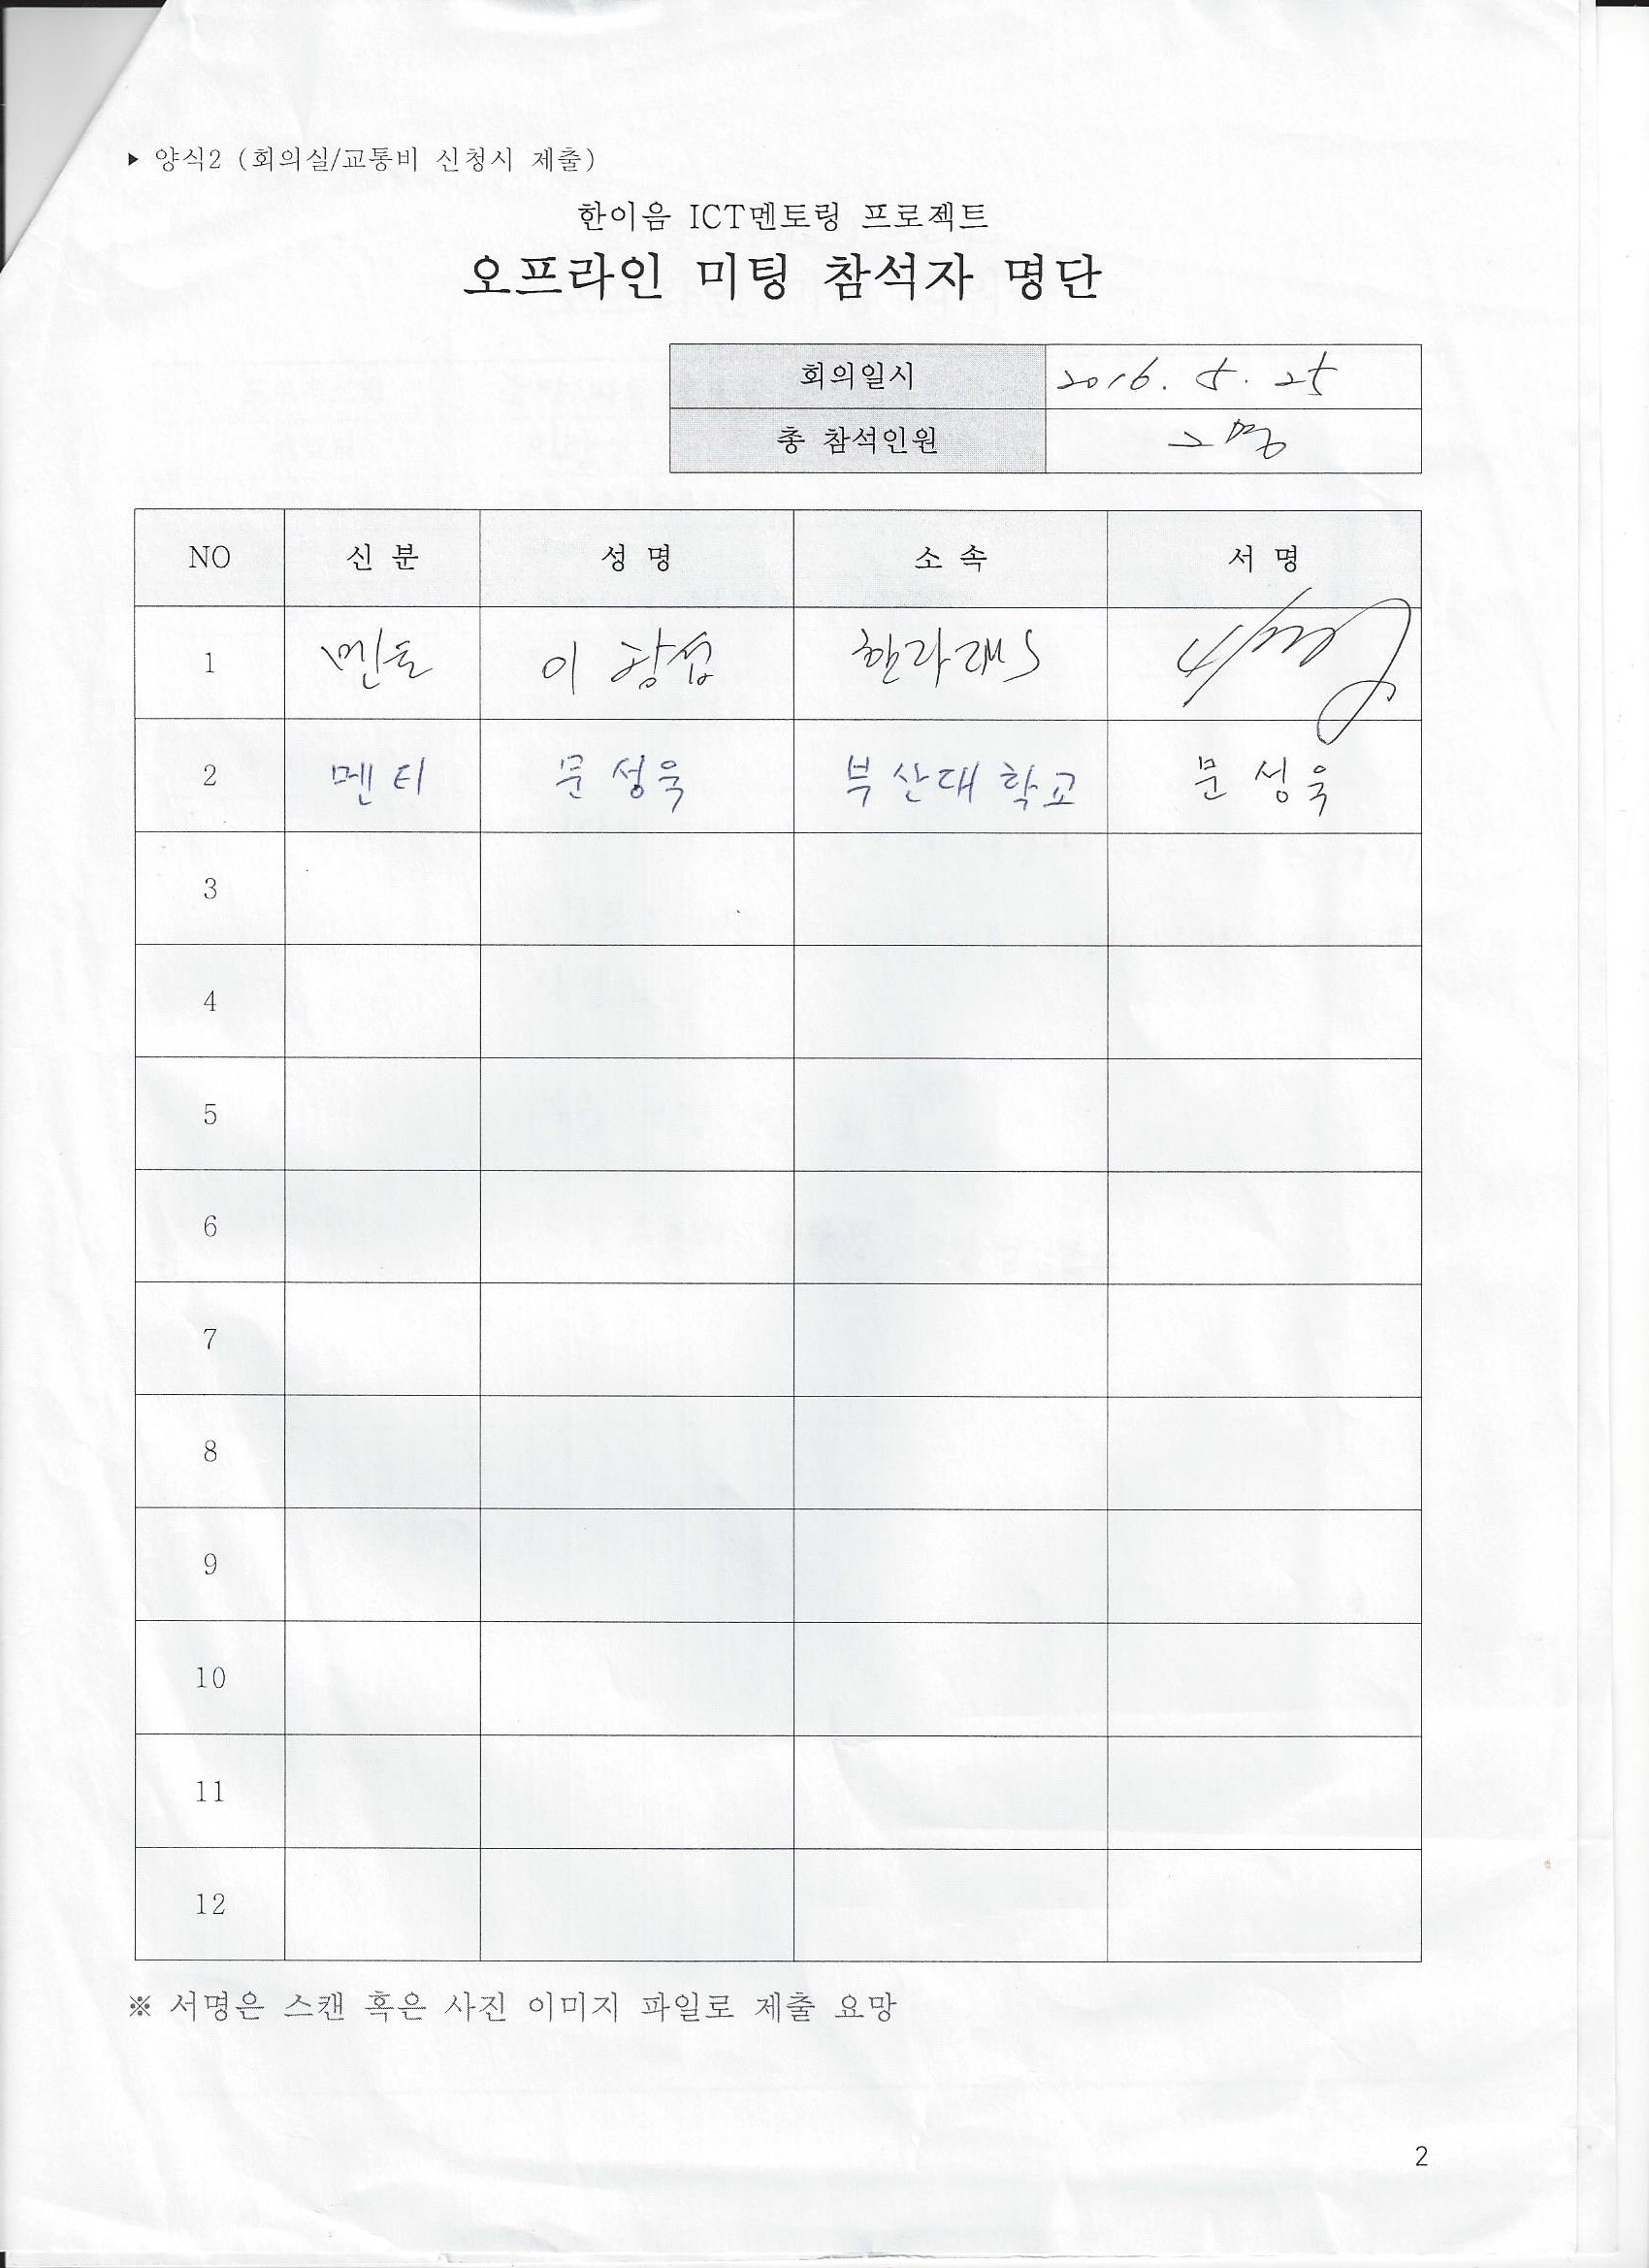 ▶ 양식2 (회의실/교통비 신청시 제출)
한이음 ICT멘토링 프로젝트
오프라인 미팅 참석자 명단
회의일시 2016. 5. 25
총 참석인원 2명
NO 신 분 성 명 소 속 서 명
1 멘토 이
2 멘티 문성욱 부산대학교 문성욱
3
4
5
6
7
8
9
10
11
12
※ 서명은 스캔 혹은 사진 이미지 파일로 제출 요망
2